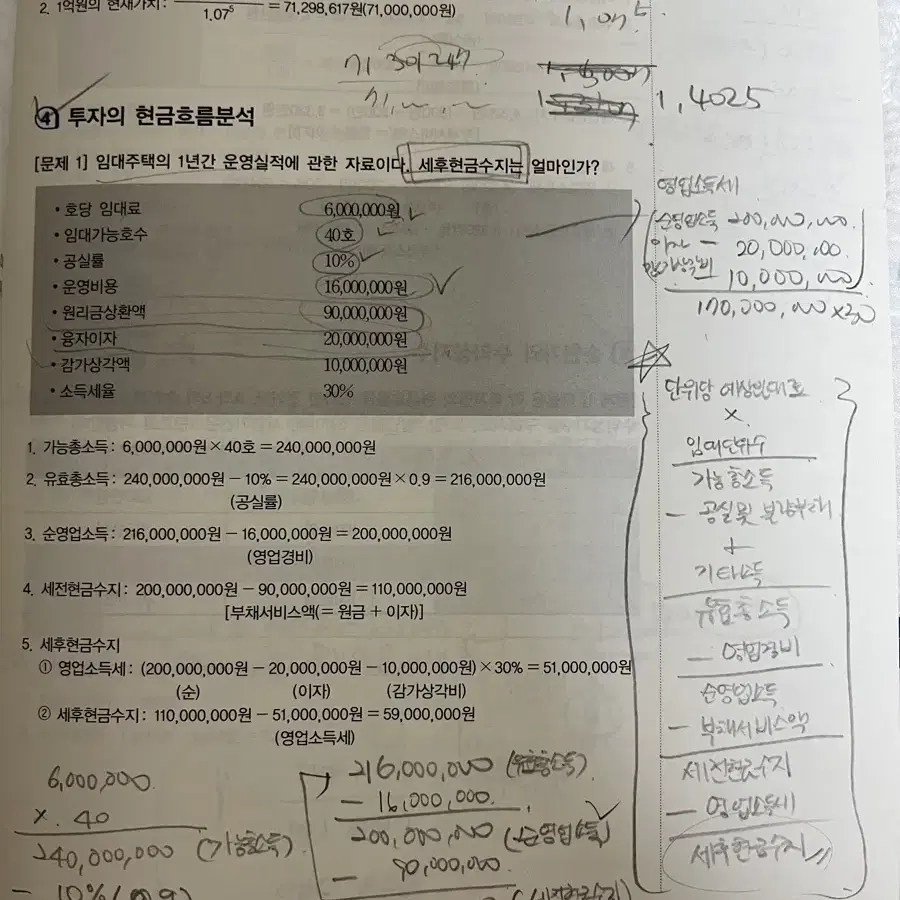 2. 1억원의 현재가치: = 71,298,617원(71,000,000원)
1.07⁵
1,4025
④ 투자의 현금흐름분석
[문제 1] 임대주택의 1년간 운영실적에 관한 자료이다. 세후현금수지는 얼마인가?
• 호당 임대료 6,000,000원
• 임대가능호수 40호
• 공실률 10%
• 운영비용 16,000,000원
• 원리금상환액 90,000,000원
• 융자이자 20,000,000원
• 감가상각액 10,000,000원
• 소득세율 30%
영업소득세
순영업소득 200,000,000
이자 — 20,000,000
감가상각비 10,000,000
170,000,000 x30
1. 가능총소득: 6,000,000원×40호=240,000,000원
2. 유효총소득: 240,000,000원-10%=240,000,000원×0.9=216,000,000원
(공실률)
3. 순영업소득: 216,000,000원-16,000,000원=200,000,000원
(영업경비)
4. 세전현금수지: 200,000,000원-90,000,000원=110,000,000원
[부채서비스액(=원금+이자)]
5. 세후현금수지
① 영업소득세: (200,000,000원-20,000,000원-10,000,000원)×30%=51,000,000원
(순) (이자) (감가상각비)
② 세후현금수지: 110,000,000원-51,000,000원=59,000,000원
(영업소득세)
단위당 예상임대료
×
임대단위수
가능총소득
- 공실 및 불량부채
+
기타소득
유효총소득
- 영업경비
순영업소득
- 부채서비스액
세전현금수지
- 영업소득세
세후현금수지
6,000,000
×. 40
240,000,000 (가능총소득)
- 10% (0.9)
216,000,000 (유효총소득)
- 16,000,000.
200,000,000 (순영업소득)
- 90,000,000
(세전현금수지)